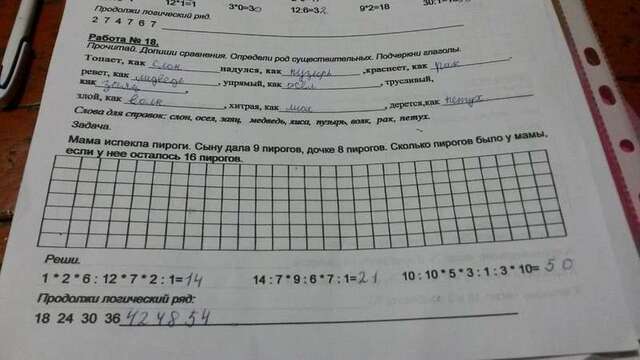 12*1=1
3*0=30
12:6=32
9*2=18
30:1=
Продолжи логический ряд.
2 7 4 7 6 7
Работа № 18.
Прочитай. Допиши сравнения. Определи род существительных. Подчеркни глаголы.
Топает, как слон надулся, как пузырь, краснеет, как рак,
ревет, как медведь, упрямый, как осел, трусливый,
как заяц,
злой, как волк, хитрая, как лиса, дерется,как петух.
Слова для справок: слон, осел, заяц, медведь, лиса, пузырь, волк, рак, петух.
Задача.
Мама испекла пироги. Сыну дала 9 пирогов, дочке 8 пирогов. Сколько пирогов было у мамы,
если у нее осталось 16 пирогов.
Реши.
1 * 2 * 6 : 12 * 7 * 2 : 1= 14 14 : 7 * 9 : 6 * 7 : 1= 21 10 : 10 * 5 * 3 : 1 : 3 * 10= 50
Продолжи логический ряд:
18 24 30 36 42 48 54